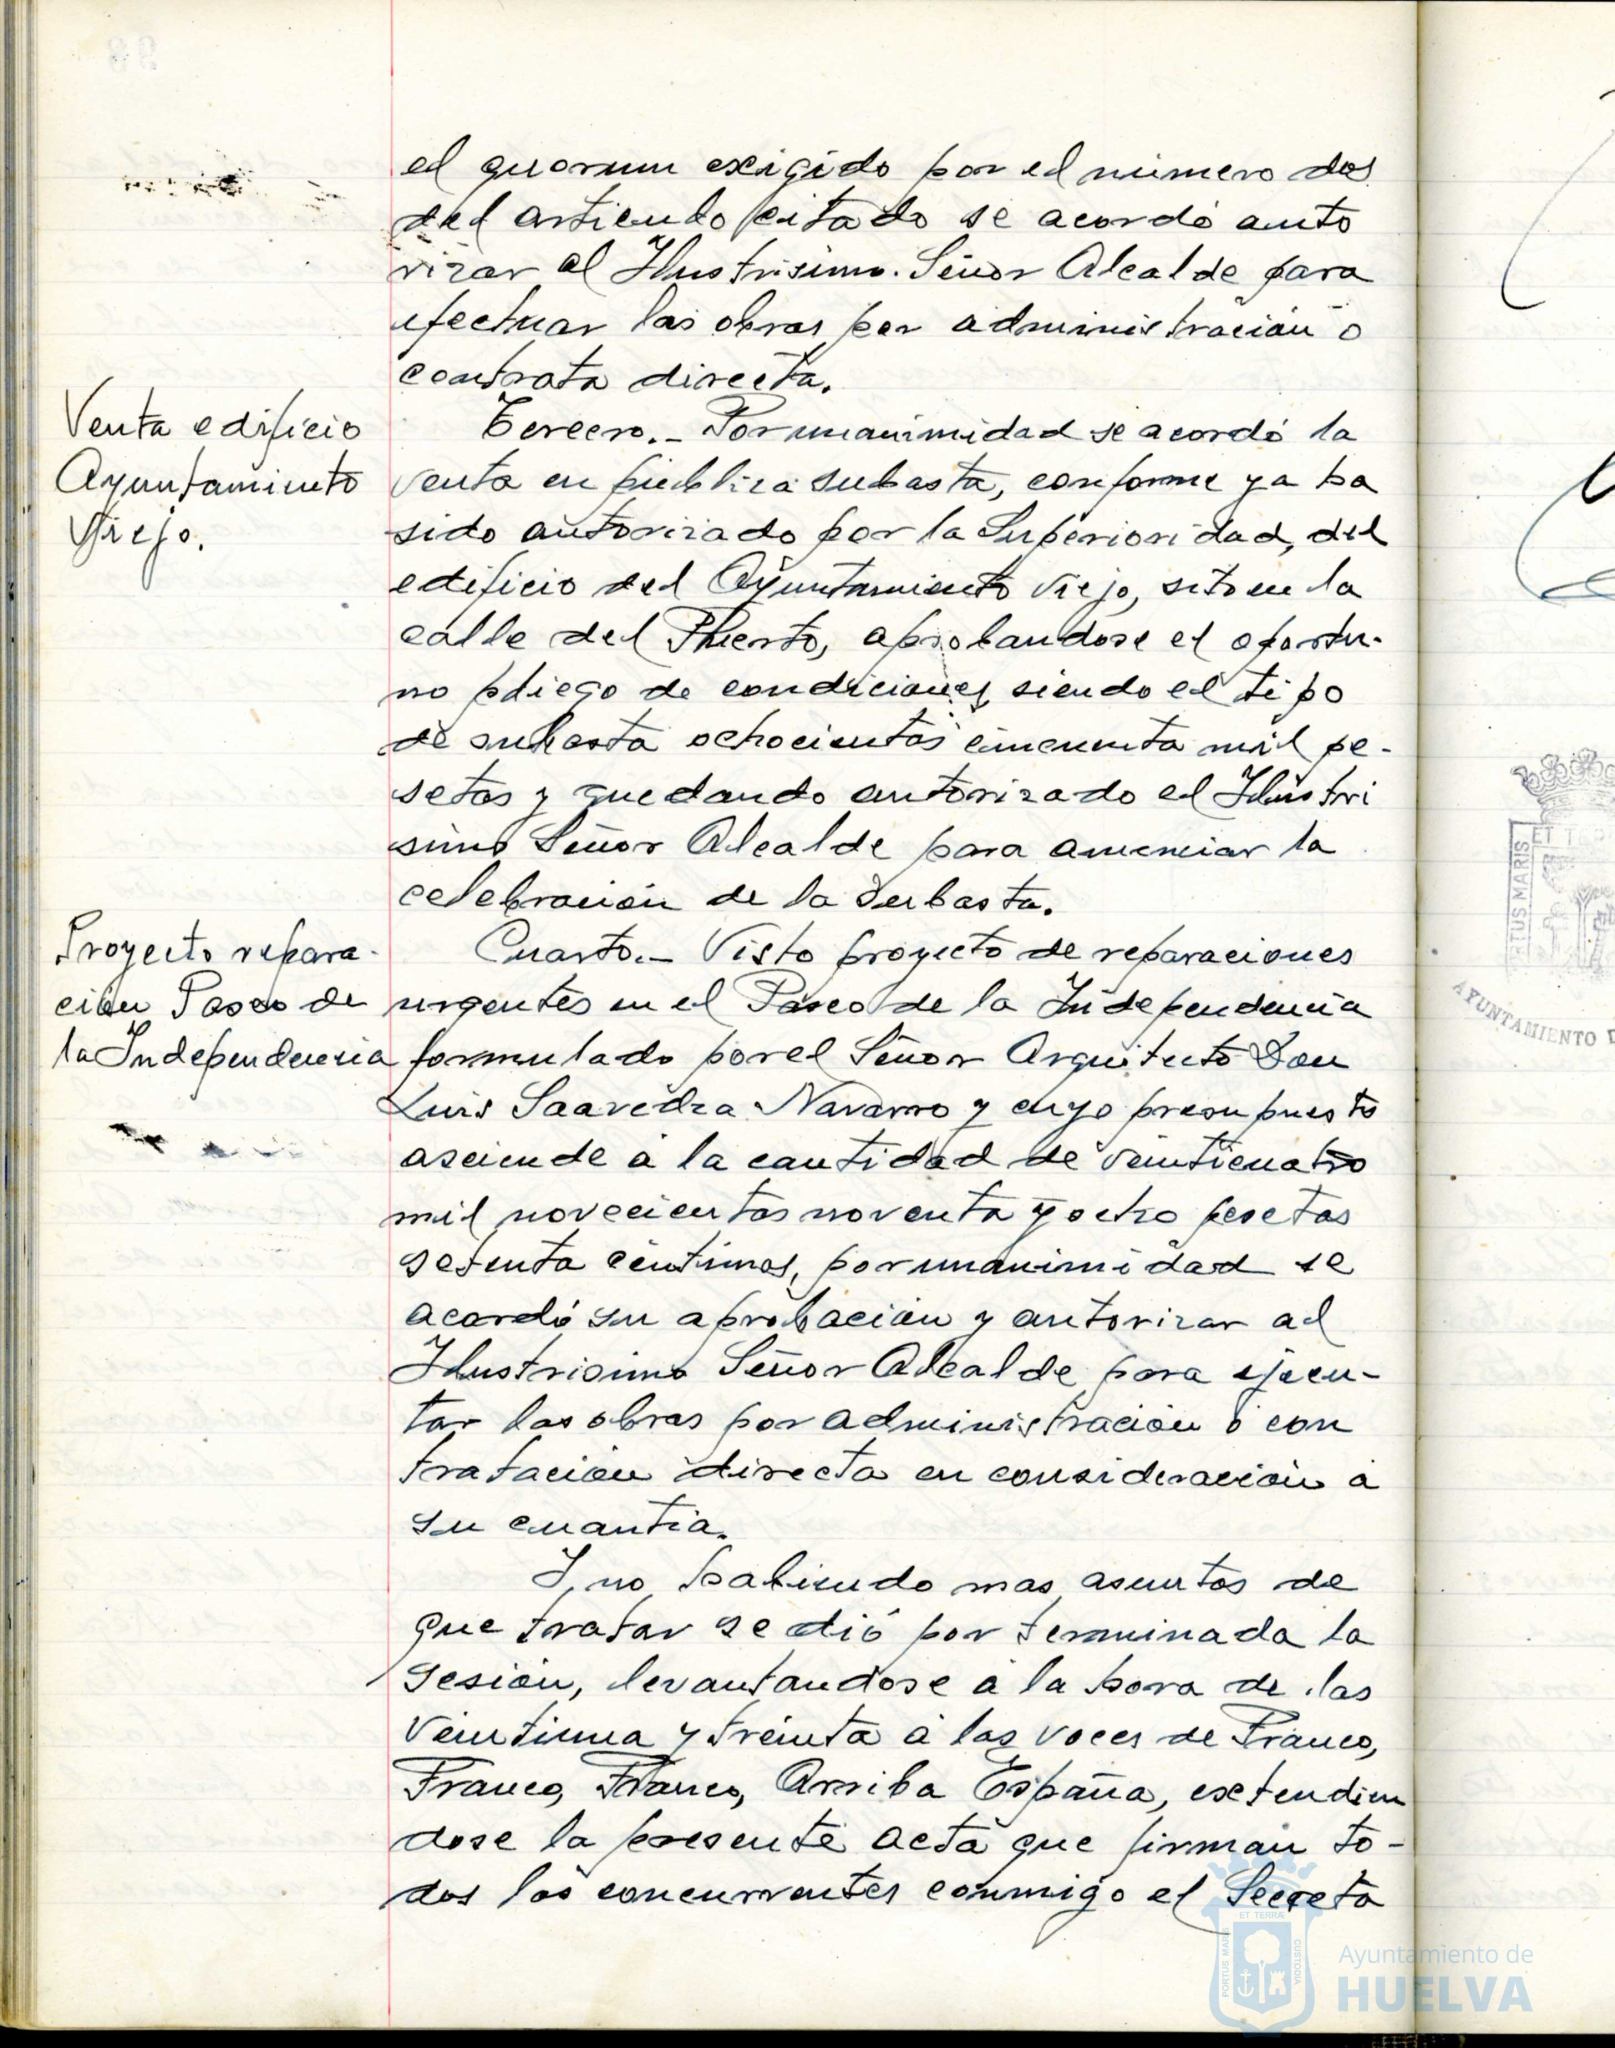 el quorum exigido por el número dos
del articulo citado se acordó auto
rizar al Ilustrisimo. Señor Alcalde para
efectuar las obras por administración o
contrata directa.
Venta edificio
Ayuntamiento
Viejo.
Tercero.- Por unanimidad se acordó la
venta en pública subasta, conforme ya ha
sido autorizado por la Superioridad, del
edificio del Ayuntamiento Viejo, sito en la
calle del Puerto, aprobandose el oportu-
no pliego de condiciones, siendo el tipo
de subasta ochocientas cincuenta mil pe-
setas y quedando autorizado el Ilustri
simo Señor Alcalde para anunciar la
celebración de la Subasta.
Proyecto repara-
ción Paseo de
la Independencia
Cuarto.- Visto proyecto de reparaciones
urgentes en el Paseo de la Independencia
formulado por el Señor Arquitecto Don
Luis Saavedra Navarro y cuyo presupuesto
asciende á la cantidad de veinticuatro
mil novecientas noventa y ocho pesetas
setenta céntimos, por unanimidad se
acordó su aprobación y autorizar al
Ilustrisimo Señor Alcalde para ejecu-
tar las obras por administración ó con
tratación directa en consideración á
su cuantia.
Y no habiendo mas asuntos de
que tratar se dió por terminada la
sesión, levantandose á la hora de las
veintiuna y treinta á las voces de Franco,
Franco, Franco, Arriba España, extendien
dose la presente acta que firman to-
dos los concurrentes conmigo el Secreta
ET TERRÆ
PORTUS MARIS
CUSTODIA
Ayuntamiento de
HUELVA
AYUNTAMIENTO D